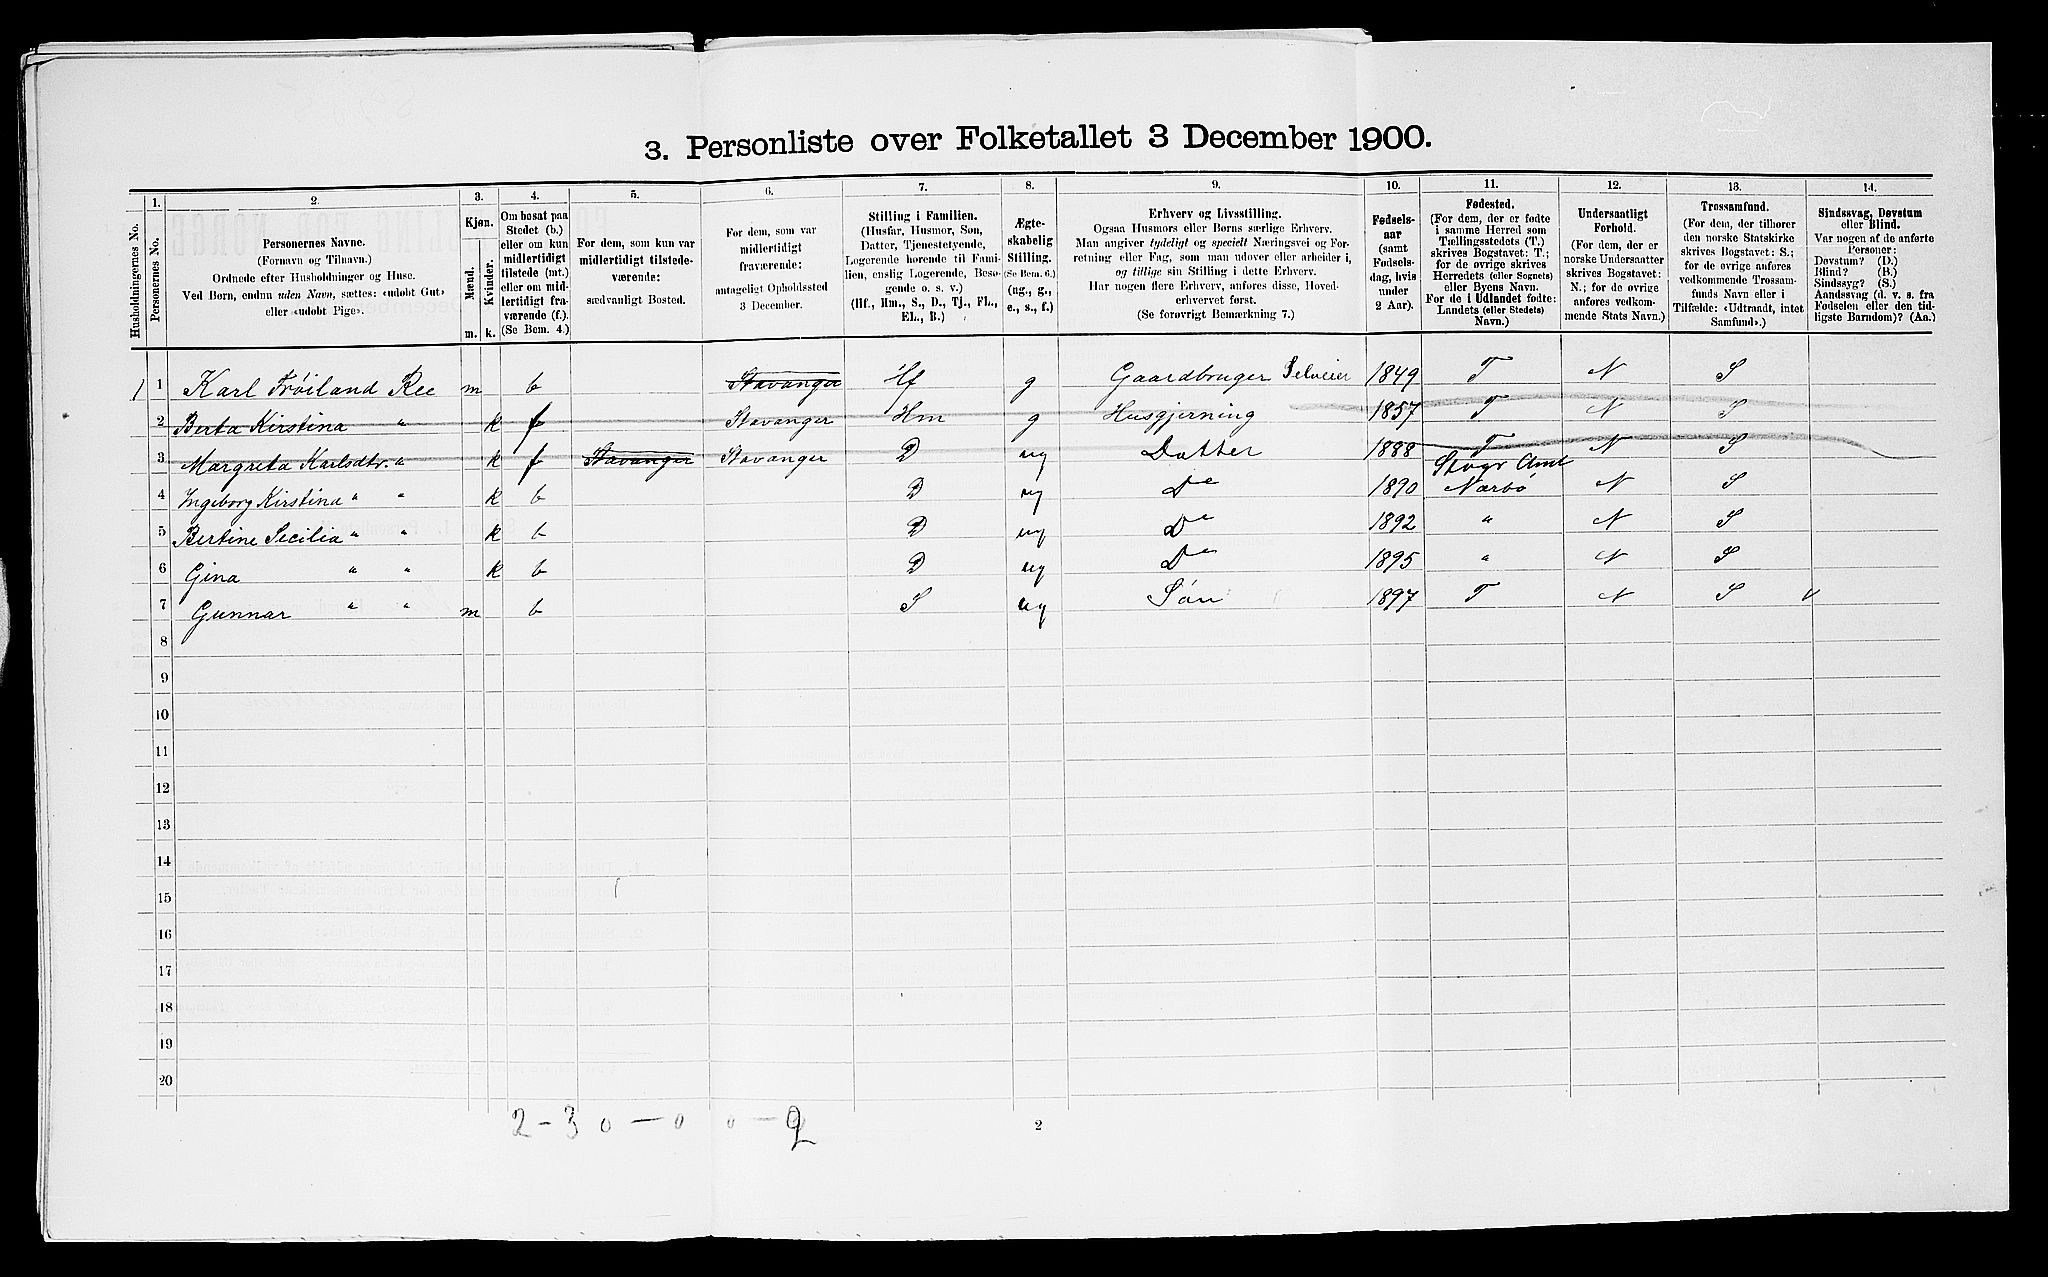 3. Personliste over Folketallet 3 December 1900.
Husholdningernes No.
1. Personernes No.
2. Personernes Navne. (Fornavn og Tilnavn.) Ordnede efter Husholdninger og Huse. Ved Børn, endnu uden Navn, sættes: «udøbt Gut» eller «udøbt Pige».
3. Kjøn. Mænd. m. Kvinder. k.
4. Om bosat paa Stedet (b.) eller om kun midlertidigt tilstede (mt.) eller om midlertidigt fraværende (f.). (Se Bem. 4.)
5. For dem, som kun var midlertidigt tilstedeværende: sædvanligt Bosted.
6. For dem, som var midlertidigt fraværende: antageligt Opholdssted 3 December.
7. Stilling i Familien. (Husfar, Husmor, Søn, Datter, Tjenestetyende, Logerende hørende til Familien, enslig Logerende, Besøgende o. s. v.) (Hf., Hm., S., D., Tj., FL., EL., B.)
8. Ægteskabelig Stilling. (Se Bem. 6.) (ug., g., e., s., f.)
9. Erhverv og Livsstilling. Ogsaa Husmors eller Børns særlige Erhverv. Man angiver tydeligt og specielt Næringsvei og Forretning eller Fag, som man udøver eller arbeider i, og tillige sin Stilling i dette Erhverv. Har nogen flere Erhverv, anføres disse, Hovederhvervet først. (Se forøvrigt Bemærkning 7.)
10. Fødselsaar (samt Fødselsdag, hvis under 2 Aar).
11. Fødested. (For dem, der er fødte i samme Herred som Tællingsstedets (T.) skrives Bogstavet: T.; for de øvrige skrives Herredets (eller Sognets) eller Byens Navn. For de i Udlandet fødte: Landets (eller Stedets) Navn.)
12. Undersaatligt Forhold. (For dem, der er norske Undersaatter skrives Bogstavet: N.; for de øvrige anføres vedkommende Stats Navn.)
13. Trossamfund. (For dem, der tilhører den norske Statskirke skrives Bogstavet: S.; for de øvrige anføres vedkommende Trossamfunds Navn eller i Tilfælde: «Udtraadt, intet Samfund».)
14. Sindssvag, Døvstum eller Blind. Var nogen af de anførte Personer: Døvstum? (D.) Blind? (B.) Sindssyg? (S.) Aandssvag (d. v. s. fra Fødselen eller den tidligste Barndom)? (Aa.)
1 1 Karl Frøiland Ree m b Stavanger Hf g Gaardbruger Selveier 1849 T N S
2 Berta Kirstina " k f Stavanger Hm g Husgjerning 1857 T N S
3 Margreta Karlsdtr. " k f Stavanger Stavanger D ug Datter 1888 T N S
4 Ingeborg Kirstina " " k b D ug Do 1890 Stvgr Amt Nærbø N S
5 Bertine Secilia " " k b D ug Do 1892 " N S
6 Gina " " k b D ug Do 1895 " N S
7 Gunnar " " m b S ug Søn 1897 T N S v
8
9
10
11
12
13
14
15
16
17
18
19
20
2-3 0 - 0 0 - 2
2